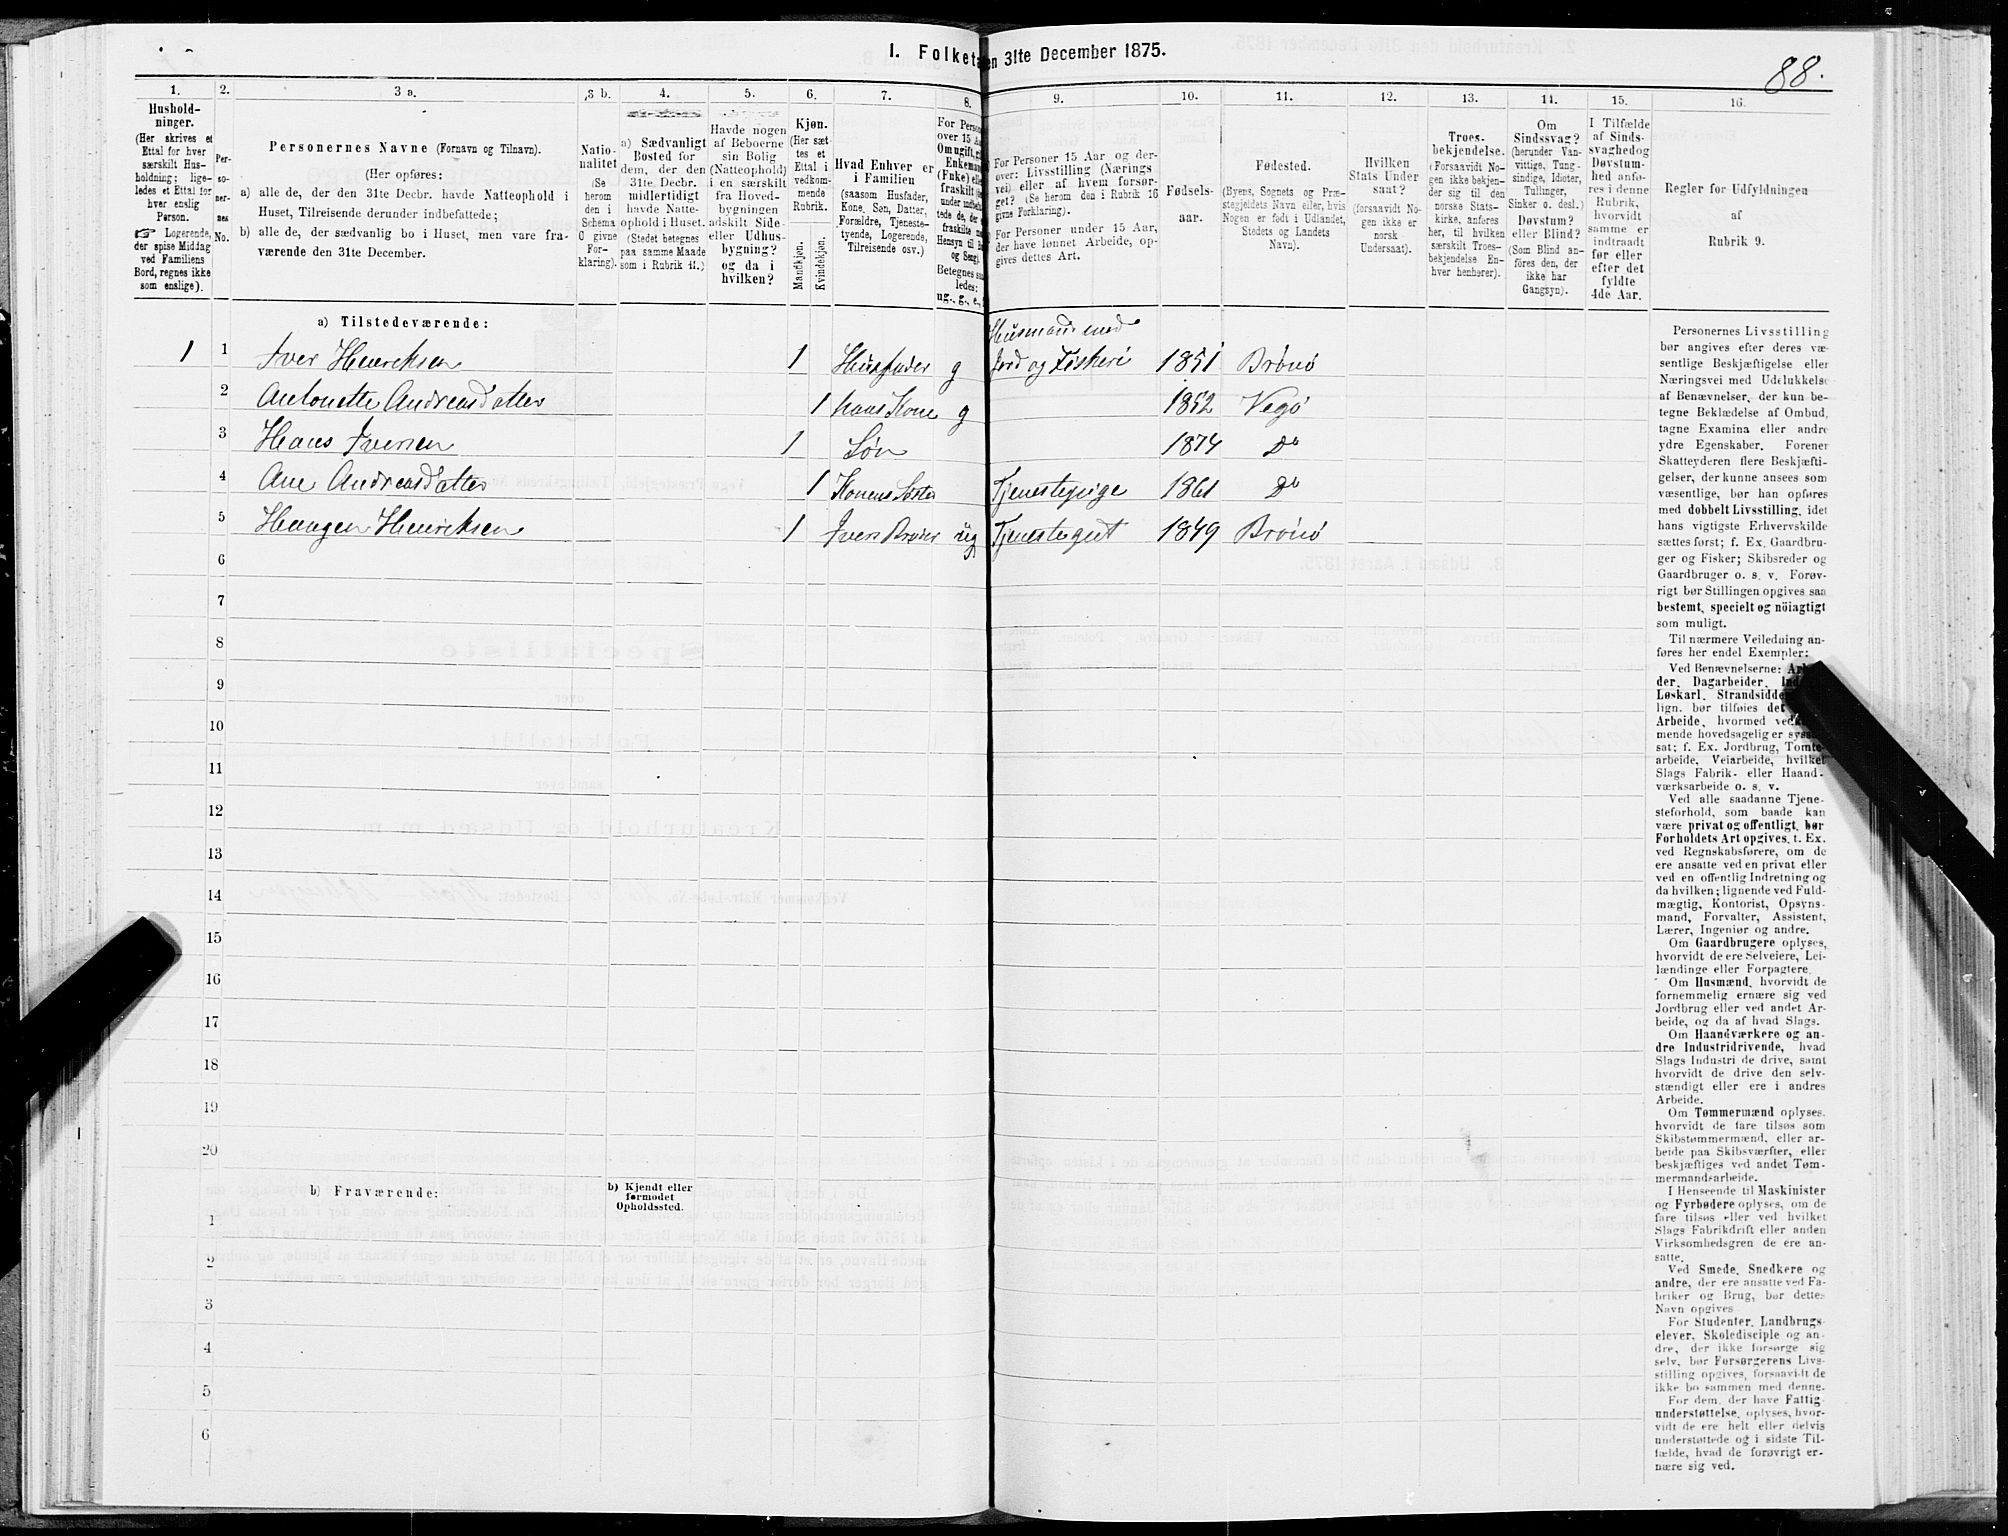 I. Folketa en 31te December 1875.
88.
1.
Hushold-
ninger.
(Her skrives et
Ettal for hver
særskilt Hus-
holdning; lige-
ledes et Ettal for
hver enslig
Person.
Logerende,
der spise Middag
ved Familiens
Bord, regnes ikke
som enslige).
2.
Per-
so-
ner-
nes
No.
3 a.
Personernes Navne (Fornavn og Tilnavn).
(Her opføres:
a) alle de, der den 31te Decbr. havde Natteophold i
Huset, Tilreisende derunder indbefattede;
b) alle de, der sædvanlig bo i Huset, men vare fra-
værende den 31te December.
3 b.
Natio-
nalitet
(Se
herom
den i
Schema
C givne
For-
klaring).
4.
a) Sædvanligt
Bosted for
dem, der den
31te Decbr.
midlertidigt
havde Natte-
ophold i Huset.
(Stedet betegnes
paa samme Maade
som i Rubrik 11.)
5.
Havde nogen
af Beboerne
sin Bolig
(Natteophold)
i en særskilt
fra Hoved-
bygningen
adskilt Side-
eller Udhus-
bygning?
og da i
hvilken?
6.
Kjøn.
(Her sæt-
tes et
Ettal i
vedkom-
mende
Rubrik.
Mandkjøn.
Kvindekjøn.
7.
Hvad Enhver er
i Familien
(saasom Husfader,
Kone, Søn, Datter,
Forældre, Tjeneste-
tyende, Logerende,
Tilreisende osv.)
8.
For Perso
over 15 Aa
Om ugift, gi
Enkeman
(Enke) ell
fraskilt
under indbef
tede de,
fraskilte
Hensyn til B
og Seng).
Betegnes
ledes:
ug., g., e.,
9.
For Personer 15 Aar og der-
over: Livsstilling (Nærings-
vei) eller af hvem forsør-
get? (Se herom den i Rubrik 16
givne Forklaring).
For Personer under 15 Aar,
der have lønnet Arbeide, op-
gives dettes Art.
10.
Fødsels-
aar.
11.
Fødested.
(Byens, Sognets og Præ-
stegjeldets Navn eller, hvis
Nogen er født i Udlandet,
Stedets og Landets
Navn).
12.
Hvilken
Stats Under
saat?
(forsaavidt No-
gen ikke er
norsk
Undersaat).
13.
Troes-
bekjendelse.
(Forsaavidt No-
gen ikke bekjen-
der sig til den
norske Stats-
kirke, anføres
her, til hvilken
særskilt Troes-
bekjendelse En-
hver henhører).
14.
Om
Sindssvag?
(herunder Van-
vittige, Tung-
sindige, Idioter,
Tullinger,
Sinker o. desl.)
Døvstum?
eller Blind?
(Som Blind an-
føres den, der
ikke har
Gangsyn).
15.
I Tilfælde
af Sinds-
svaghed og
Døvstum-
hed anfø-
res i denne
Rubrik,
hvorvidt
samme er
indtraadt
før eller
efter det
fyldte
4de Aar.
16.
Regler for Udfyldningen
af
Rubrik 9.
a) Tilstedeværende:
Husmand med
1 1 Iver Henriksen 1 Husfader g Jord og Fiskeri 1851 Brønø
2 Antonette Andreasdatter 1 hans Kone g 1852 Vegø
3 Hans Iversen 1 Søn 1874 Do
4 Ane Andreasdatter 1 Konens Søster Tjenestepige 1861 Do
5 Haagen Henriksen 1 Ivers Broder ug Tjenestegut 1849 Brønø
6
7
8
9
10
11
12
13
14
15
16
17
18
19
20
b) Fraværende:
b) Kjendt eller
formodet
Opholdssted.
1
2
3
4
5
6
Personernes Livsstilling
bør angives efter deres væ-
sentlige Beskjæftigelse eller
Næringsvei med Udelukkelse
af Benævnelser, der kun be-
tegne Beklædelse af Ombud,
tagne Examina eller andre
ydre Egenskaber. Forener
Skatteyderen flere Beskjæfti-
gelser, der kunne ansees som
væsentlige, bør han opføres
med dobbelt Livsstilling, idet
hans vigtigste Erhvervskilde
sættes først; f. Ex. Gaardbru-
ger og Fisker; Skibsreder og
Gaardbruger o. s. v. Forøv-
rigt bør Stillingen opgives saa
bestemt, specielt og nöiagtigt
som muligt.
Til nærmere Veiledning an-
føres her endel Exempler:
Ved Benævnelserne: Arbei
der, Dagarbeider, Ind
Løskarl, Strandsidde
lign. bør tilføies det
Arbeide, hvormed vedkom-
mende hovedsagelig er syssel-
sat; f. Ex. Jordbrug, Tomte-
arbeide, Veiarbeide, hvilket
Slags Fabrik- eller Haand-
værksarbeide o. s. v.
Ved alle saadanne Tjene-
steforhold, som baade kan
være privat og offentligt, bør
Forholdets Art opgives, t. Ex.
ved Regnskabsførere, om de
ere ansatte ved en privat eller
ved en offentlig Indretning og
da hvilken; lignende ved Fuld-
mægtig, Kontorist, Opsyns-
mand, Forvalter, Assistent,
Lærer, Ingeniør og andre.
Om Gaardbrugere oplyses,
hvorvidt de ere Selveiere, Lei-
lændinge eller Forpagtere.
Om Husmænd, hvorvidt de
fornemmelig ernære sig ved
Jordbrug eller ved andet Ar-
beide, og da af hvad Slags.
Om Haandværkere og an-
dre Industridrivende, hvad
Slags Industri de drive, samt
hvorvidt de drive den selv-
stændigt eller ere i andres
Arbeide.
Om Tømmermænd oplyses,
hvorvidt de fare tilsøs som
Skibstømmermænd, eller ar-
beide paa Skibsværfter, eller
beskjæftiges ved andet Tøm-
mermandsarbeide.
I Henseende til Maskinister
og Fyrbødere oplyses, om de
fare tilsøs eller ved hvilket
Slags Fabrikdrift eller anden
Virksomhedsgren de ere an-
satte.
Ved Smede, Snedkere og
andre, der ere ansatte ved Fa-
briker og Brug, bør dettes
Navn opgives
For Studenter, Landbrugs-
elever, Skoledisciple og an-
dre, der ikke forsørge sig
selv, bør Forsørgerens Livs-
stilling opgives, forsaavidt de
ikke bo sammen med denne.
For dem, der have Fattig-
understøttelse, oplyses, hvor-
vidt de ere helt eller delvis
understøttede og i sidste Til-
fælde, hvad de forøvrigt er-
nære sig ved.